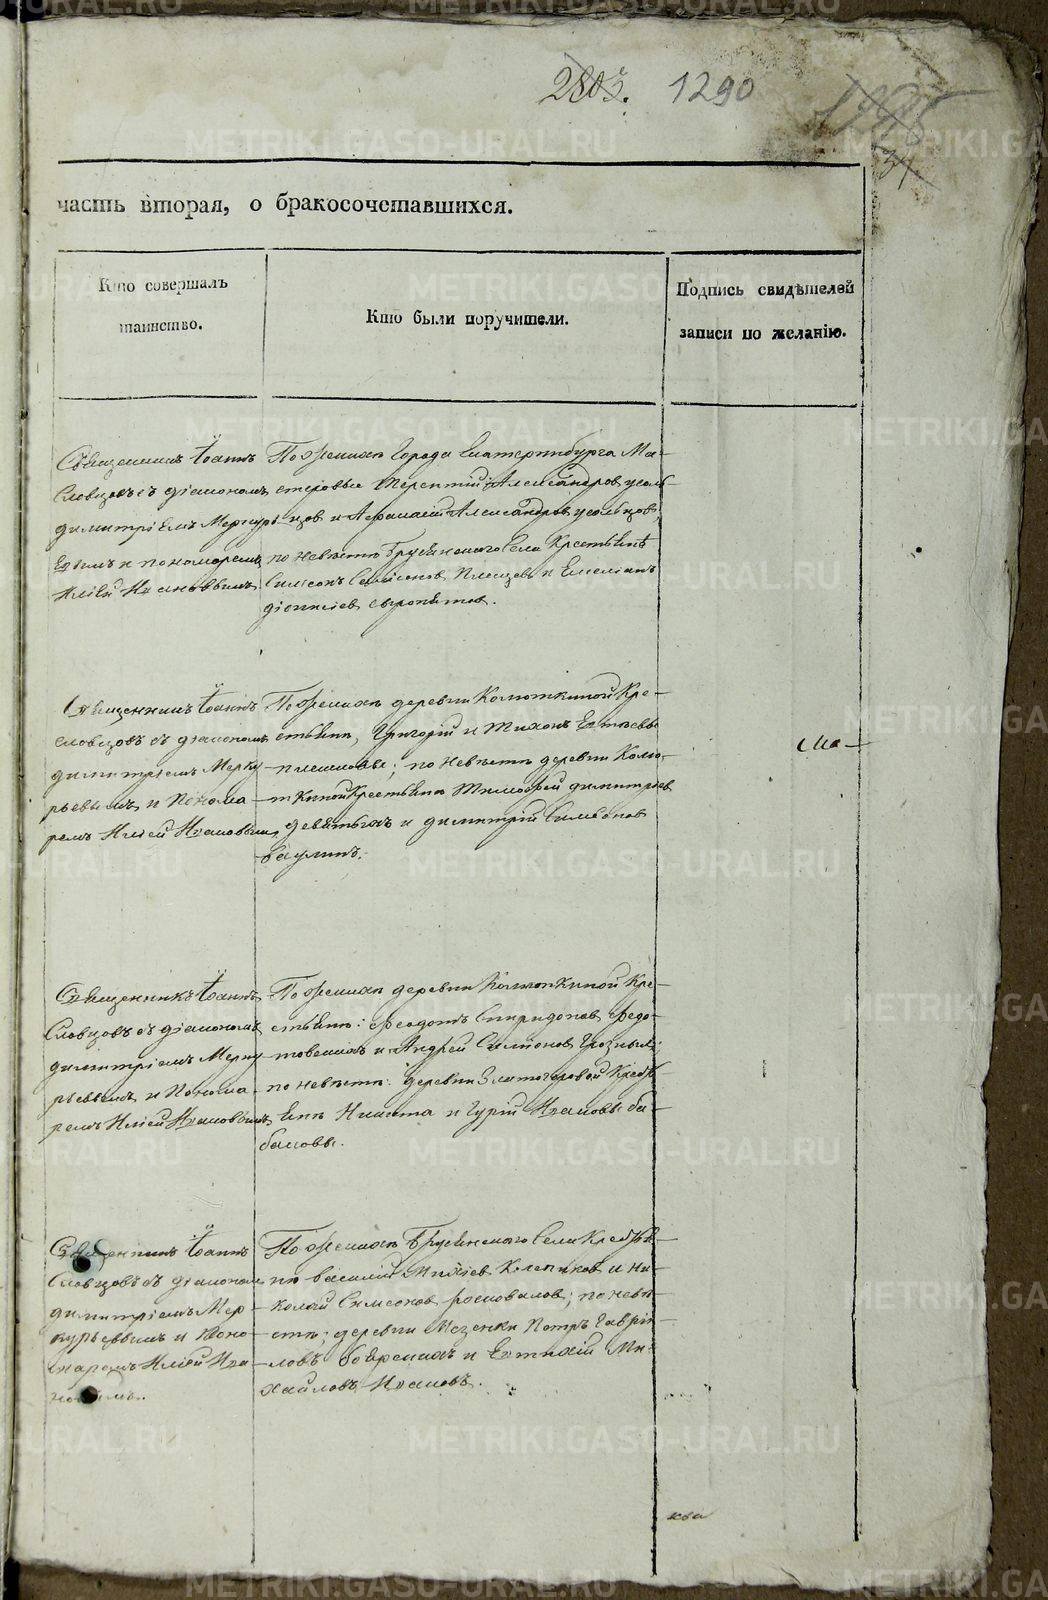 2803. 1290
часть вторая, о бракосочетавшихся.
Кто совершалъ
таинство.
Кто были поручители.
Подпись свидѣтелей
записи по желанію.
Священникъ Іоаннъ
Словцовъ съ діакономъ
димитріемъ Меркурь
евымъ и пономаремъ
Иліей Ивановымъ.
По женихѣ Города Екатеринбурга Ма-
стеровые Терентій Александров усоль
цов и Афанасій Александров усольцов,
по невѣстѣ Брусянского Села Крестьянѣ
Симеон Семионов и Емелианъ
діонисіев
Священникъ Іоаннъ
Словцовъ съ діакономъ
димитріемъ Мерку
рьевымъ и Понома
ремъ Иліей Ивановымъ
По женихѣ деревни Колюткиной Кре-
стьяне, Григорій и Тихонъ Евтѣевы
; по невѣстѣ деревни Колю-
ткиной Крестьяне Тимофей димитріев
девятых и димитрій Симеонов
ваулинъ.
Священникъ Іоаннъ
Словцовъ съ діакономъ
димитріемъ Мерку
рьевымъ и Понома
ремъ Иліей Ивановымъ
По женихѣ деревни Колюткиной Кре-
стьяне: Феодотъ Спиридонов Федо-
товских и Андрей Симионов Грозных;
по невѣстѣ: деревни Златогоровой Кресть
яне Никита и Гурій Ивановы ба-
бановы.
Священникъ Іоаннъ
Словцовъ съ діаконом
димитріемъ Мер
курьевымъ и Поно
маремъ Иліей Ива
новымъ.
По женихѣ Брусянского Села Крестья-
не василій Клепиков и Ни-
колай Симеонов; по невѣ-
стѣ: деревни Мезенки Петръ Гаври-
ловъ бояренихъ и Евтихій Ми-
хайловъ Ивановъ.